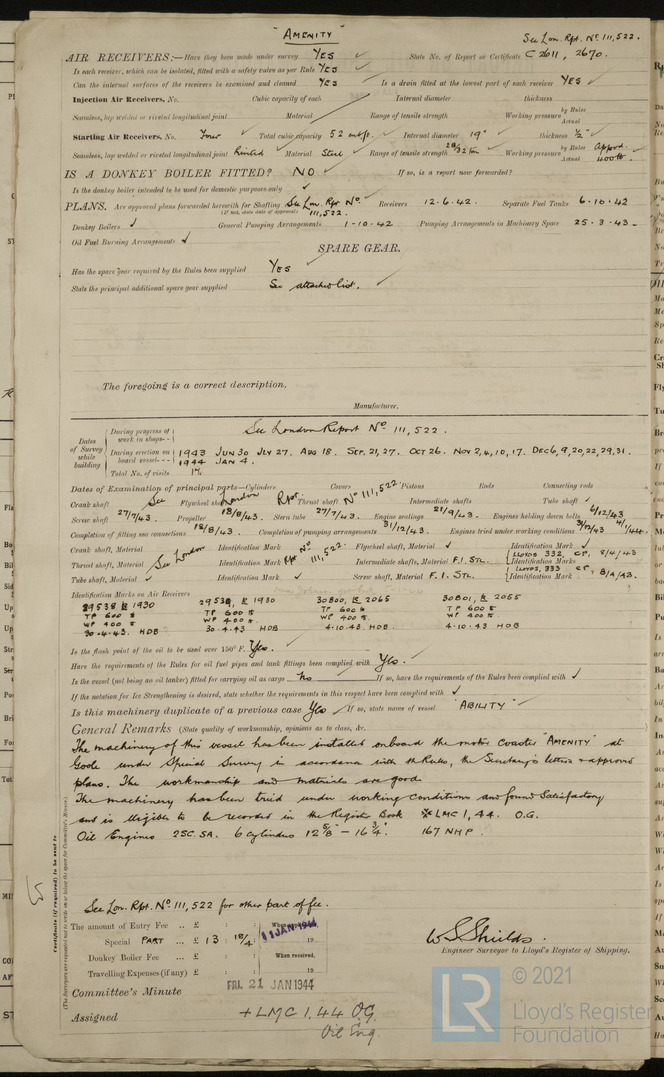 "AMENITY"
See Lon. Rpt. No. 111,522.
AIR RECEIVERS:—Have they been made under survey YES State No. of Report or Certificate C 2611, 2670.
Is each receiver, which can be isolated, fitted with a safety valve as per Rule YES
Can the internal surfaces of the receivers be examined and cleaned YES Is a drain fitted at the lowest part of each receiver YES
Injection Air Receivers, No. Cubic capacity of each Internal diameter thickness
Seamless, lap welded or riveted longitudinal joint Material Range of tensile strength Working pressure by Rules Actual
Starting Air Receivers, No. Four Total cubic capacity 52 Internal diameter 19" thickness ½"
Seamless, lap welded or riveted longitudinal joint Riveted Material Steel Range of tensile strength 28/32 ton Working pressure by Rules Appvd. Actual 400
IS A DONKEY BOILER FITTED? NO If so, is a report now forwarded?
Is the donkey boiler intended to be used for domestic purposes only
PLANS. Are approved plans forwarded herewith for Shafting See Lon. Rpt. No. 111,522. Receivers 12.6.42. Separate Fuel Tanks 6.10.42
(If not, state date of approval)
Donkey Boilers General Pumping Arrangements 1-10-42 Pumping Arrangements in Machinery Space 25.3.43.
Oil Fuel Burning Arrangements
SPARE GEAR.
Has the spare gear required by the Rules been supplied YES
State the principal additional spare gear supplied See attached list.
The foregoing is a correct description,
Manufacturer.
Dates of Survey while building
During progress of work in shops - - See London Report No. 111,522.
During erection on board vessel - - - 1943 JUN 30 JLY 27. AUG 18. SEP. 21, 27. OCT 26. NOV 2, 4, 10, 17. DEC 6, 9, 20, 22, 29, 31.
1944 JAN 4.
Total No. of visits
Dates of Examination of principal parts—Cylinders Covers Pistons Rods Connecting rods
See London Rpt. No 111,522
Crank shaft Flywheel shaft Thrust shaft Intermediate shafts Tube shaft
Screw shaft 27/7/43. Propeller 18/8/43. Stern tube 27/7/43. Engine seatings 21/9/43. Engines holding down bolts 6/12/43
Completion of fitting sea connections 18/8/43. Completion of pumping arrangements 31/12/43. Engines tried under working conditions 31/12/43 4/1/44.
Crank shaft, Material Identification Mark Flywheel shaft, Material Identification Mark
See London Rpt No 111,522.
Thrust shaft, Material Identification Mark Intermediate shafts, Material F.I. STL. Identification Marks LLOYDS 332, CP, 8/4/43
Tube shaft, Material Identification Mark Screw shaft, Material F.I. STL. Identification Mark LLOYDS, 333 CP,
Identification Marks on Air Receivers
29538 1930 29538, 1930 30800, 2065 30801, 2055
TP 600 TP 600 TP 600 TP 600
WP 400 WP 400 WP 400 WP 400
30.4.43. HDB 30.4.43 HDB 4.10.43 HDB. 4.10.43 HDB
Is the flash point of the oil to be used over 150° F. Yes.
Have the requirements of the Rules for oil fuel pipes and tank fittings been complied with Yes.
Is the vessel (not being an oil tanker) fitted for carrying oil as cargo No If so, have the requirements of the Rules been complied with
If the notation for Ice Strengthening is desired, state whether the requirements in this respect have been complied with
Is this machinery duplicate of a previous case Yes If so, state name of vessel "ABILITY"
General Remarks (State quality of workmanship, opinions as to class, &c.
The machinery of this vessel has been installed onboard the motor coaster "AMENITY" at
Goole under Special Survey in accordance with the Rules, the Secretary's letters & approved
plans. The workmanship and materials are good.
The machinery has been tried under working conditions and found satisfactory
and is eligible to be recorded in the Register Book LMC 1,44. O.G.
Oil Engines 2SC.SA. 6 Cylinders 12 5/8" – 16 3/4". 167 NHP.
See Lon. Rpt. No 111,522 for other part of fee.
The amount of Entry Fee .. £ : :
Special PART ... £ 13 : 18/4 :
11 JAN 1944
19
Donkey Boiler Fee ... £ : : When received,
Travelling Expenses (if any) £ : : 19
W. S. Shields.
Engineer Surveyor to Lloyd's Register of Shipping.
Committee's Minute FRI. 21 JAN 1944
Assigned + LMC 1.44 OG
Oil Eng
Certificate (if required) to be sent to
(The Surveyors are requested not to write on or below the space for Committee's Minute.)
LR
© 2021
Lloyd's Register
Foundation